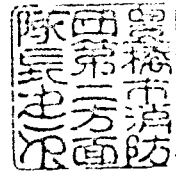 豊橋市消防
団第二方面
隊長之印